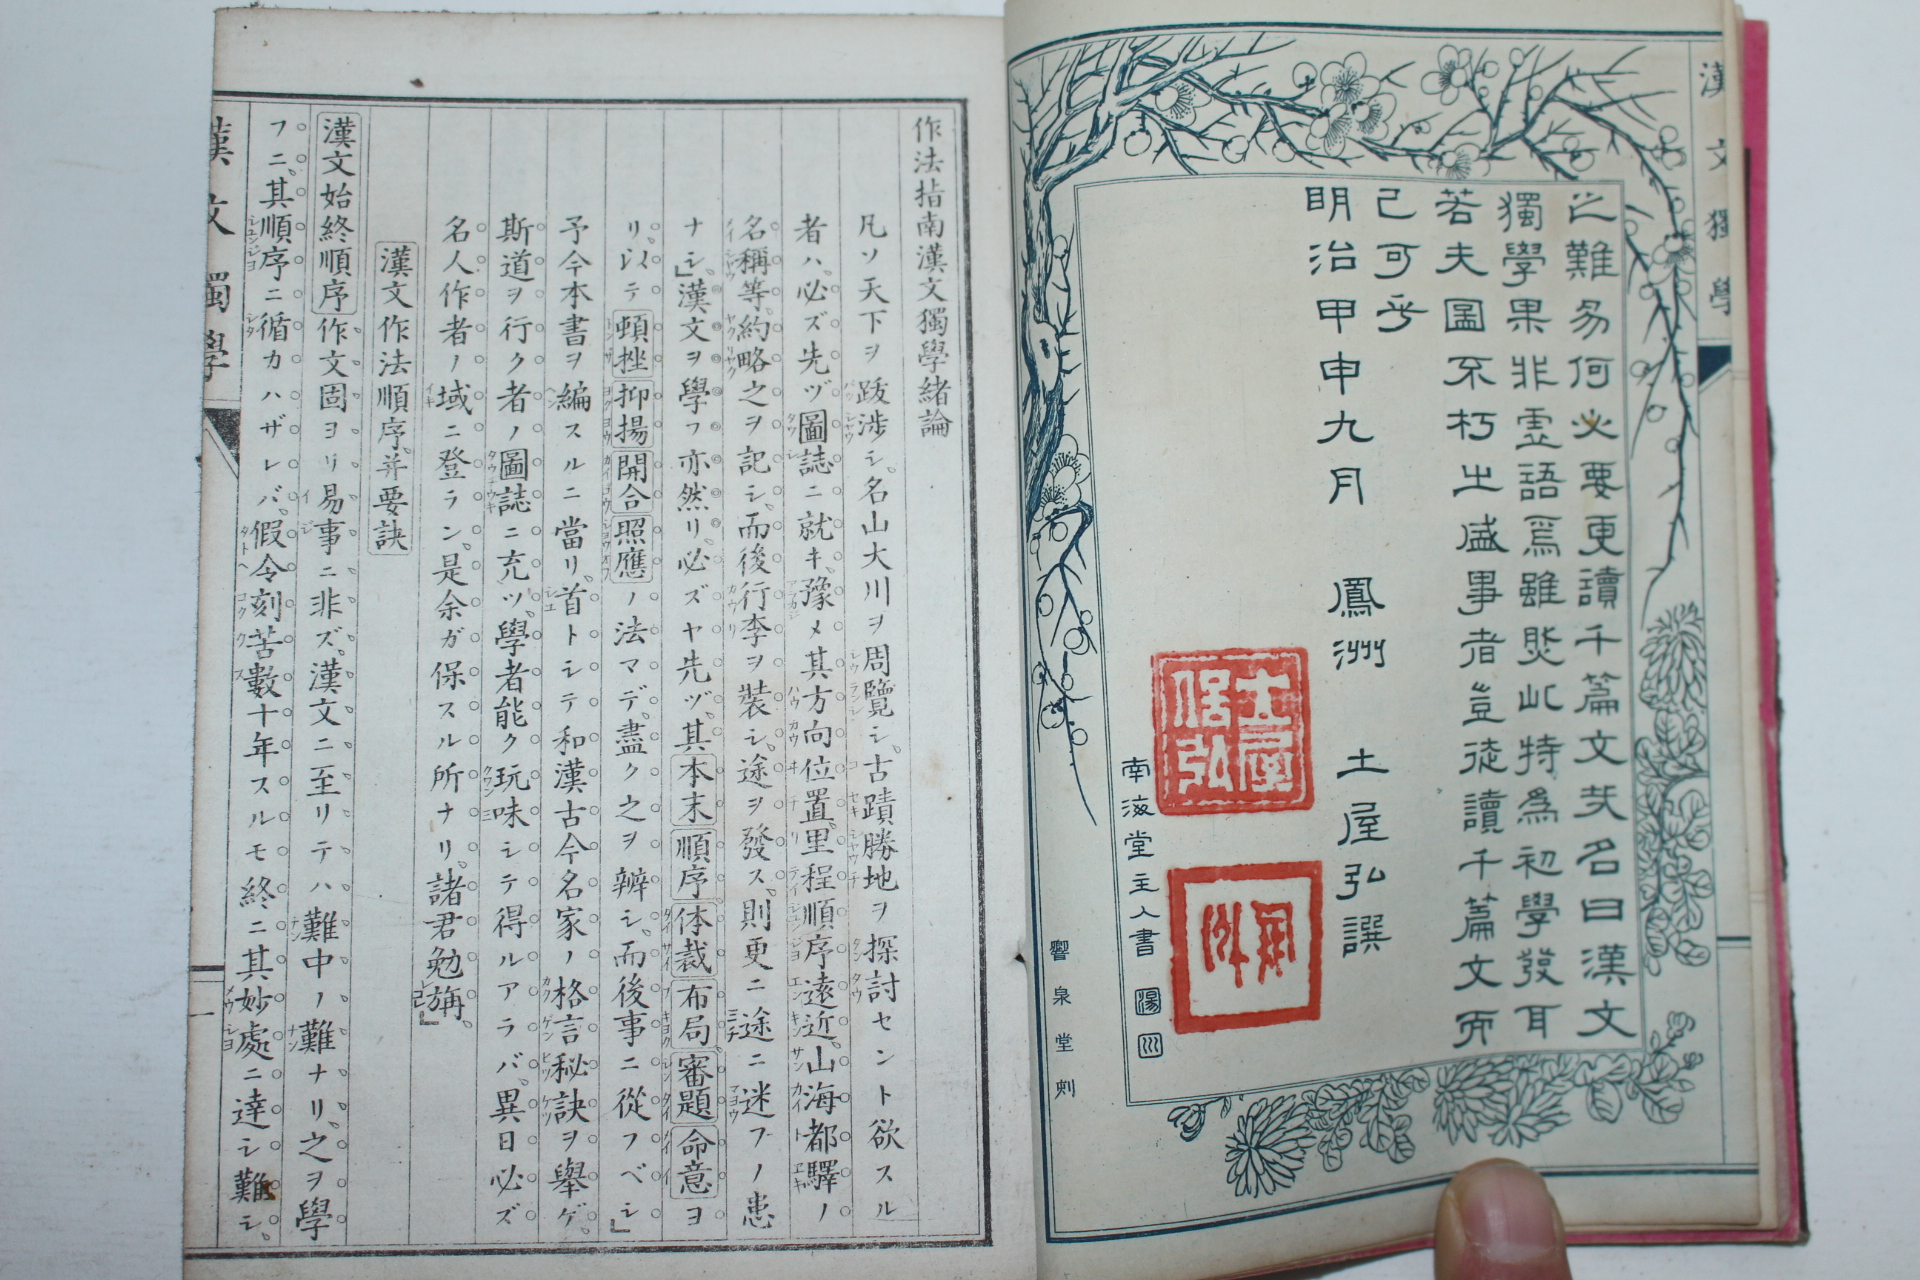 漢文獨學
之難易何必要更讀千篇文哉名曰漢文
獨學果非虛語焉雖然此特為初學發耳
若夫圖不朽之盛事者豈徒讀千篇文而
已可乎
明治甲申九月 鳳洲 土屋弘譔
土屋弘
南海堂主人書
響泉堂刻
作法指南漢文獨學緒論
凡ソ天下ヲ跋涉シ、名山大川ヲ周覽シ、古蹟勝地ヲ探討セント欲スル
者ハ、必ズ先ヅ圖誌ニ就キ、豫メ其方向位置、里程順序、遠近、山海都驛ノ
名稱等、約略之ヲ記シ、而後行李ヲ裝シ、途ヲ發ス、則更ニ途ニ迷フノ患
ナシ」漢文ヲ學フ亦然リ、必ズヤ先ヅ、其本末順序体裁布局審題命意ヨ
リ、以テ頓挫抑揚開合照應ノ法マデ、盡ク之ヲ辨シ、而後事ニ從フベシ」
予今本書ヲ編スルニ當リ、首トシテ和漢古今名家ノ格言秘訣ヲ舉ゲ、
斯道ヲ行ク者ノ圖誌ニ充ツ、學者能ク玩味シテ得ルアラバ、異日必ズ
名人作者ノ域ニ登ラン、是余ガ保スル所ナリ、諸君勉旃、
漢文作法順序并要訣
漢文始終順序 作文固ヨリ易事ニ非ズ、漢文ニ至リテハ難中ノ難ナリ、之ヲ學
フニ、其順序ニ循カハザレバ、假令刻苦數十年スルモ終ニ其妙處ニ達シ難シ、
漢文獨學
一